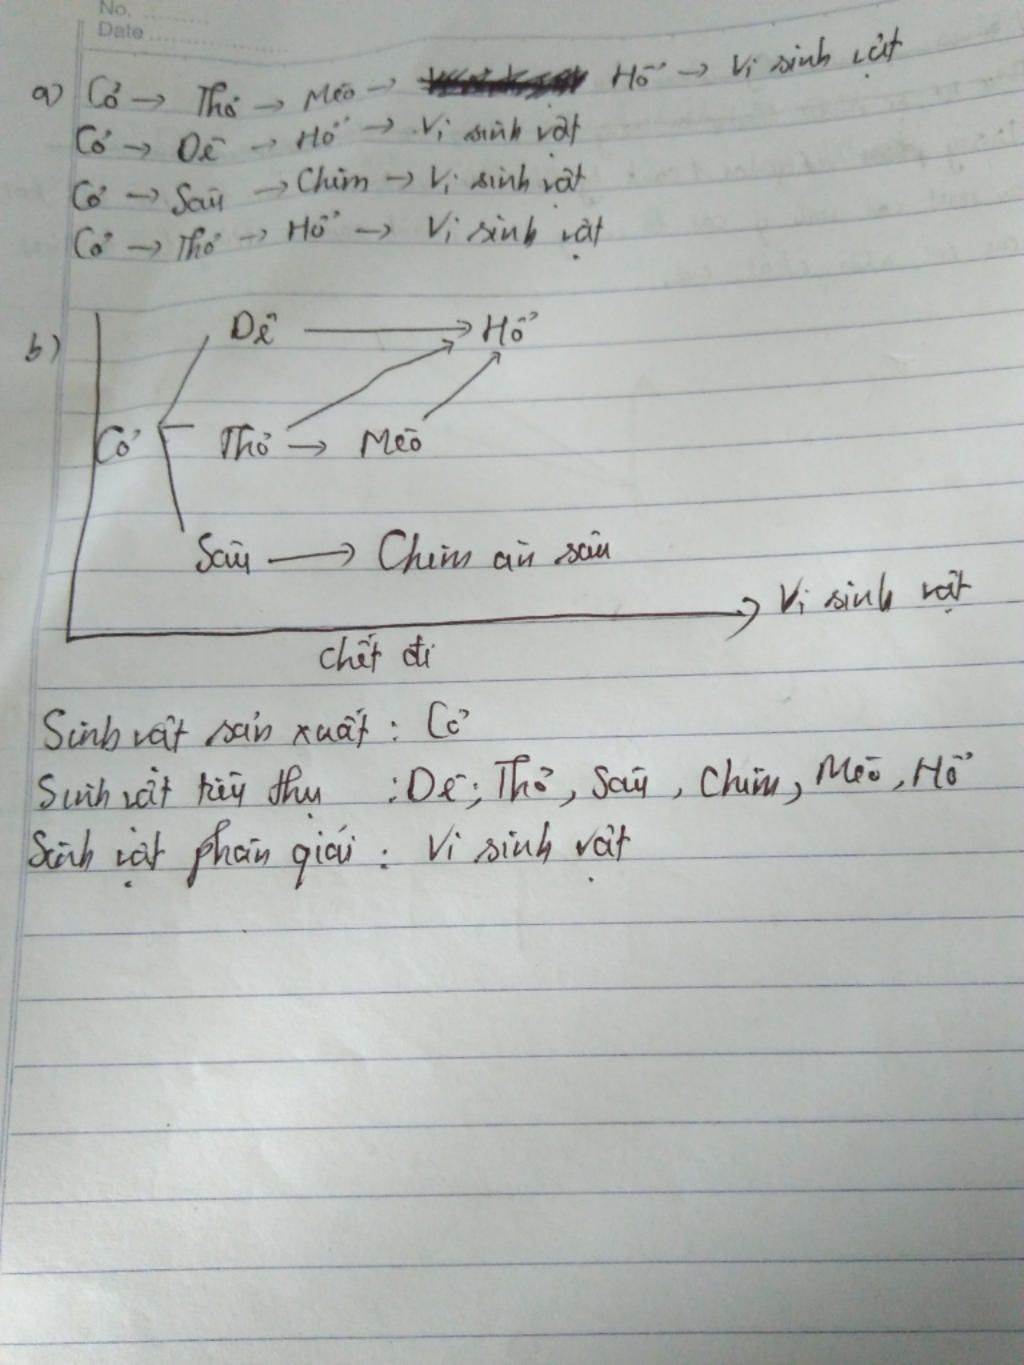 No. ..........
Date ......................
a) Cỏ → Thỏ → Mèo → Hổ → Vi sinh vật
Cỏ → Dê → Hổ → Vi sinh vật
Cỏ → Sâu → Chim → Vi sinh vật
Cỏ → Thỏ → Hổ → Vi sinh vật
b) Dê → Hổ
Cỏ Thỏ → Mèo
Sâu → Chim ăn sâu
Vi sinh vật
chết đi
Sinh vật sản xuất : Cỏ
Sinh vật tiêu thụ : Dê; Thỏ, Sâu, Chim, Mèo, Hổ
Sinh vật phân giải : Vi sinh vật